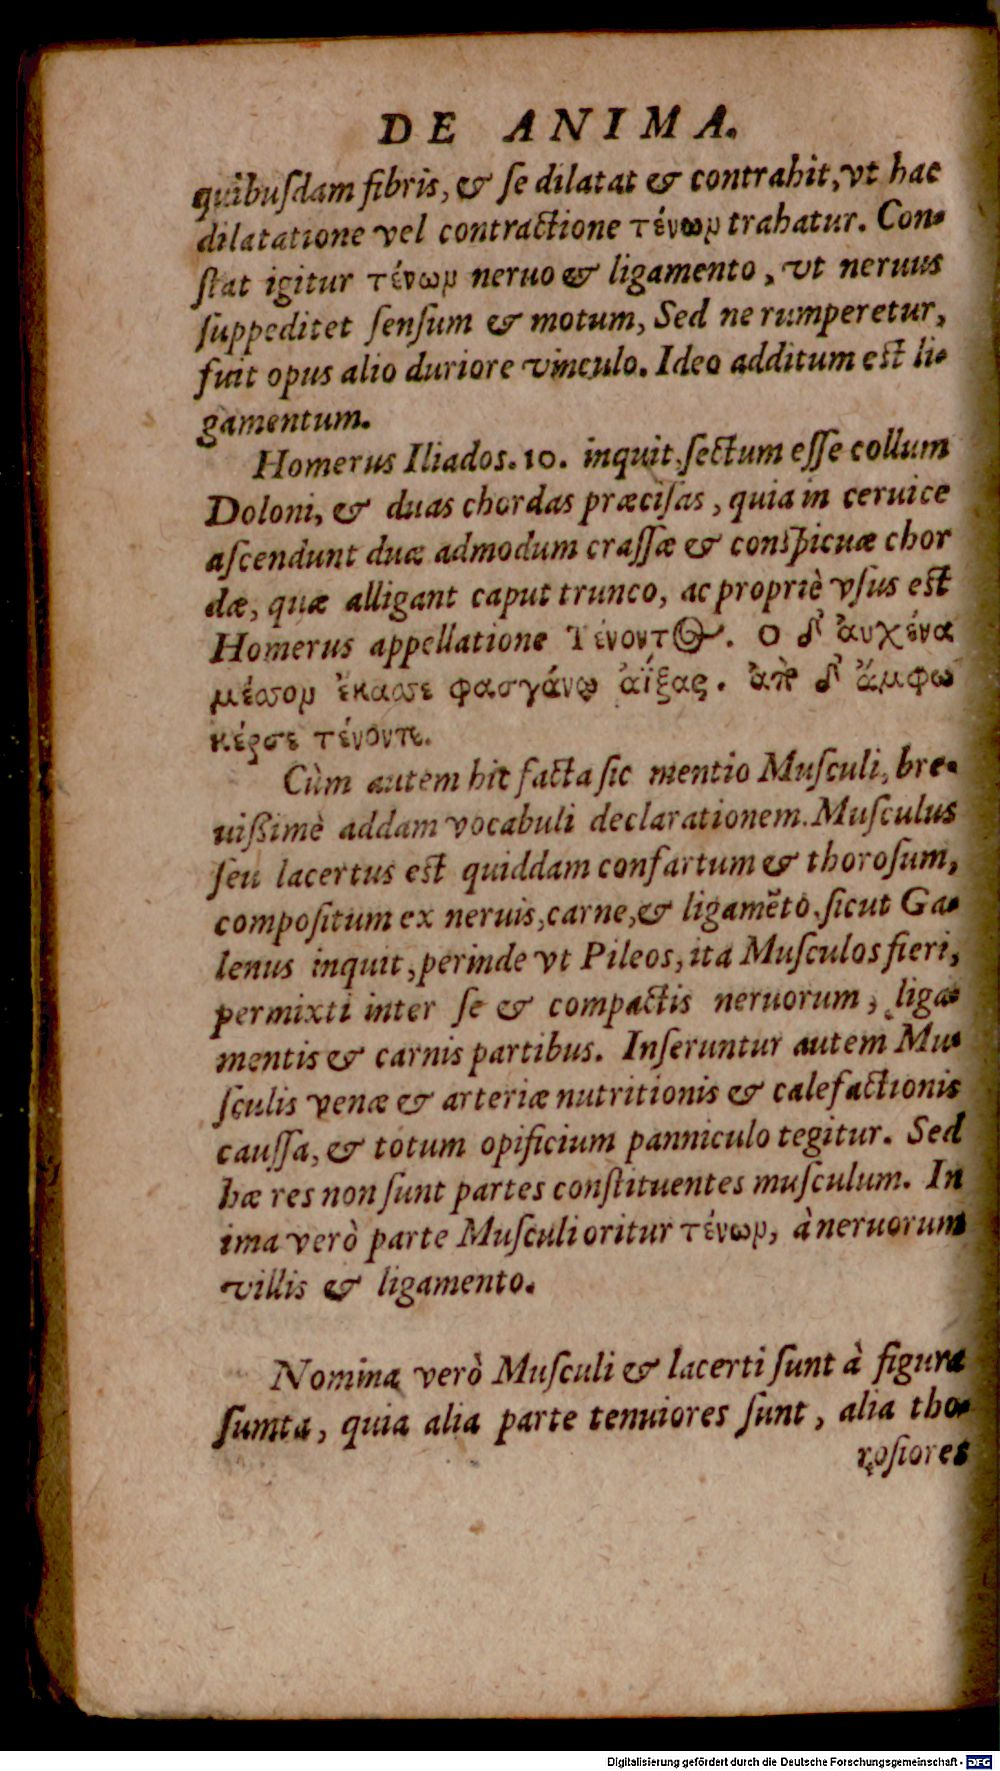 DE ANIMA.
quibuſdam fibris, & ſe dilatat & contrahit, vt hac
dilatatione vel contractione τένωρ trahatur. Con-
ſtat igitur τένωρ neruo & ligamento, vt neruus
ſuppeditet ſenſum & motum, Sed ne rumperetur,
fuit opus alio duriore vinculo. Ideo additum eſt li-
gamentum.
Homerus Iliados. 10. inquit, ſectum eſſe collum
Doloni, & duas chordas præciſas, quia in ceruice
aſcendunt duæ admodum craſſæ & conſpicuæ chor
dæ, quæ alligant caput trunco, ac propriè vſus eſt
Homerus appellatione Τένοντος. Ο δ' ἀυχένα
μέσσον ἔκασσε φασγάνῳ ἀΐξας. ἀπὸ δ' ἄμφω
κέρσε τένοντε.
Cùm autem hic facta ſic mentio Muſculi, bre-
uißimè addam vocabuli declarationem. Muſculus
ſeu lacertus eſt quiddam confartum & thoroſum,
compoſitum ex neruis, carne, & ligamẽto, ſicut Ga-
lenus inquit, perinde vt Pileos, ita Muſculos fieri,
permixti inter ſe & compactis neruorum, liga-
mentis & carnis partibus. Inſeruntur autem Mu-
ſculis venæ & arteriæ nutritionis & calefactionis
cauſſa, & totum opificium panniculo tegitur. Sed
hæ res non ſunt partes conſtituentes muſculum. In
ima verò parte Muſculi oritur τένωρ, à neruorum
villis & ligamento.
Nomina verò Muſculi & lacerti ſunt à figura
ſumta, quia alia parte tenuiores ſunt, alia tho-
roſiores
Digitalisierung gefördert durch die Deutsche Forschungsgemeinschaft - DFG